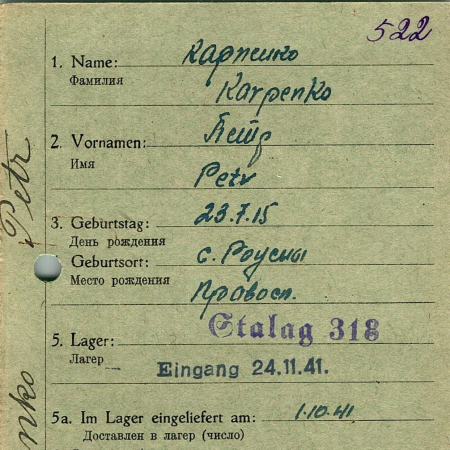 522
1. Name: Карпенко
Фамилия
Karpenko
2. Vornamen: Петр
Имя
Petr
3. Geburtstag: 23.7.15
День рождения
Geburtsort: с. Роусны
Место рождения
Правосл.
5. Lager: Stalag 318
Лагер
Eingang 24.11.41.
5a. Im Lager eingeliefert am: 1.10.41
Доставлен в лагер (число)
Petr
nko